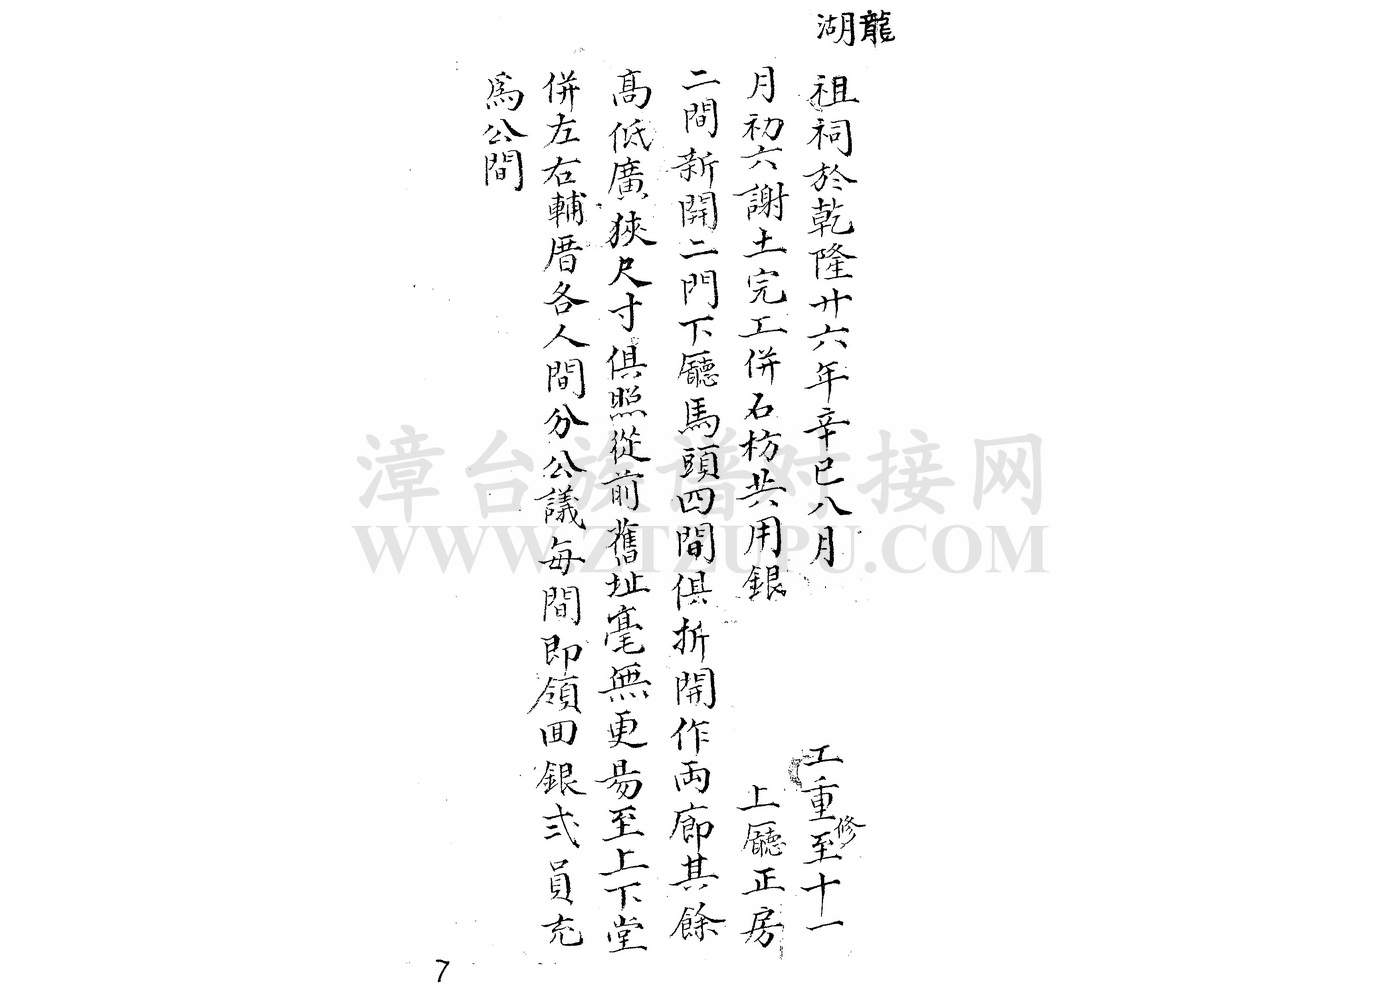 龍湖
祖祠於乾隆廿六年辛巳八月 工重修至十一
月初六謝土完工併石枋共用銀 上廳正房
二間新開二門下廳馬頭四間俱折開作両廊其餘
高低廣狹尺寸俱照從前舊址毫無更易至上下堂
併左右輔厝各人間分公議每間即領回銀弍員充
為公間
7
漳台族谱对接网
WWW.ZTZUPU.COM